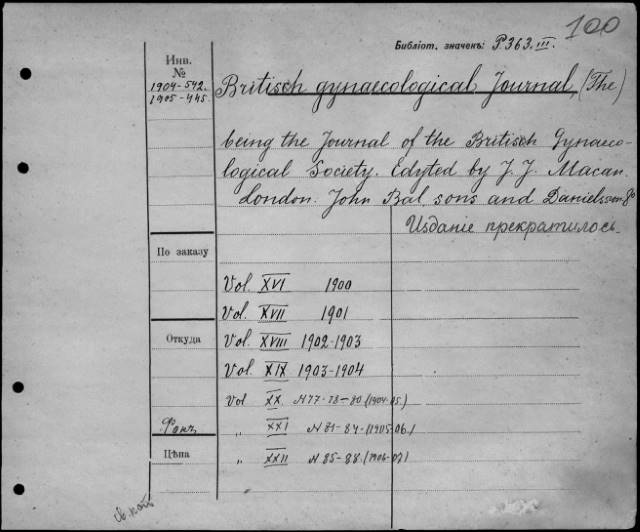 100
Библіот. значекъ: P363.III.
Инв.
№
1904-542.
1905-445.
Britisch gynaecological Journal, (The)
being the Journal of the Britisch Gynaeco-
logical Society. Edyted by J. J. Macan.
London. John Bal sons and Danielsson
Изданіе прекратилось.
По заказу
Vol. XVI 1900
Vol. XVII 1901
Откуда
Vol. XVIII 1902-1903
Vol. XIX 1903-1904
Vol XX. N 77-78-80 (1904-05.)
„ XXI N 81-84-(1905-06.)
Цѣна
„ XXII N 85-88. (1906-07)